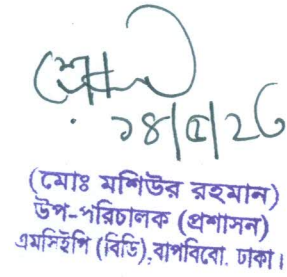 ১৪/৫/২৩
(মোঃ মশিউর রহমান)
উপ-পরিচালক (প্রশাসন)
এমসিইপি (বিডি), বাপবিবো, ঢাকা।